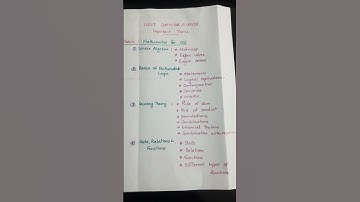 COMPUTER SCIENCE
Important Topics
Mathematics for CS
① Linear Algebra : * Matrices
* Eigen values
* Eigen vectors
② Basics of Mathematical Logic : * Statements
* Logical equivalences
* Contrapositive
* Converse
* Inverse
③ Counting Theory : * Rule of Sum
* Rule of product
* Permutations
* Combinations
* Binomial Theorem
* Combination with
④ Sets, Relations & Functions * Sets
* Relations
* Functions
* Different types of functions